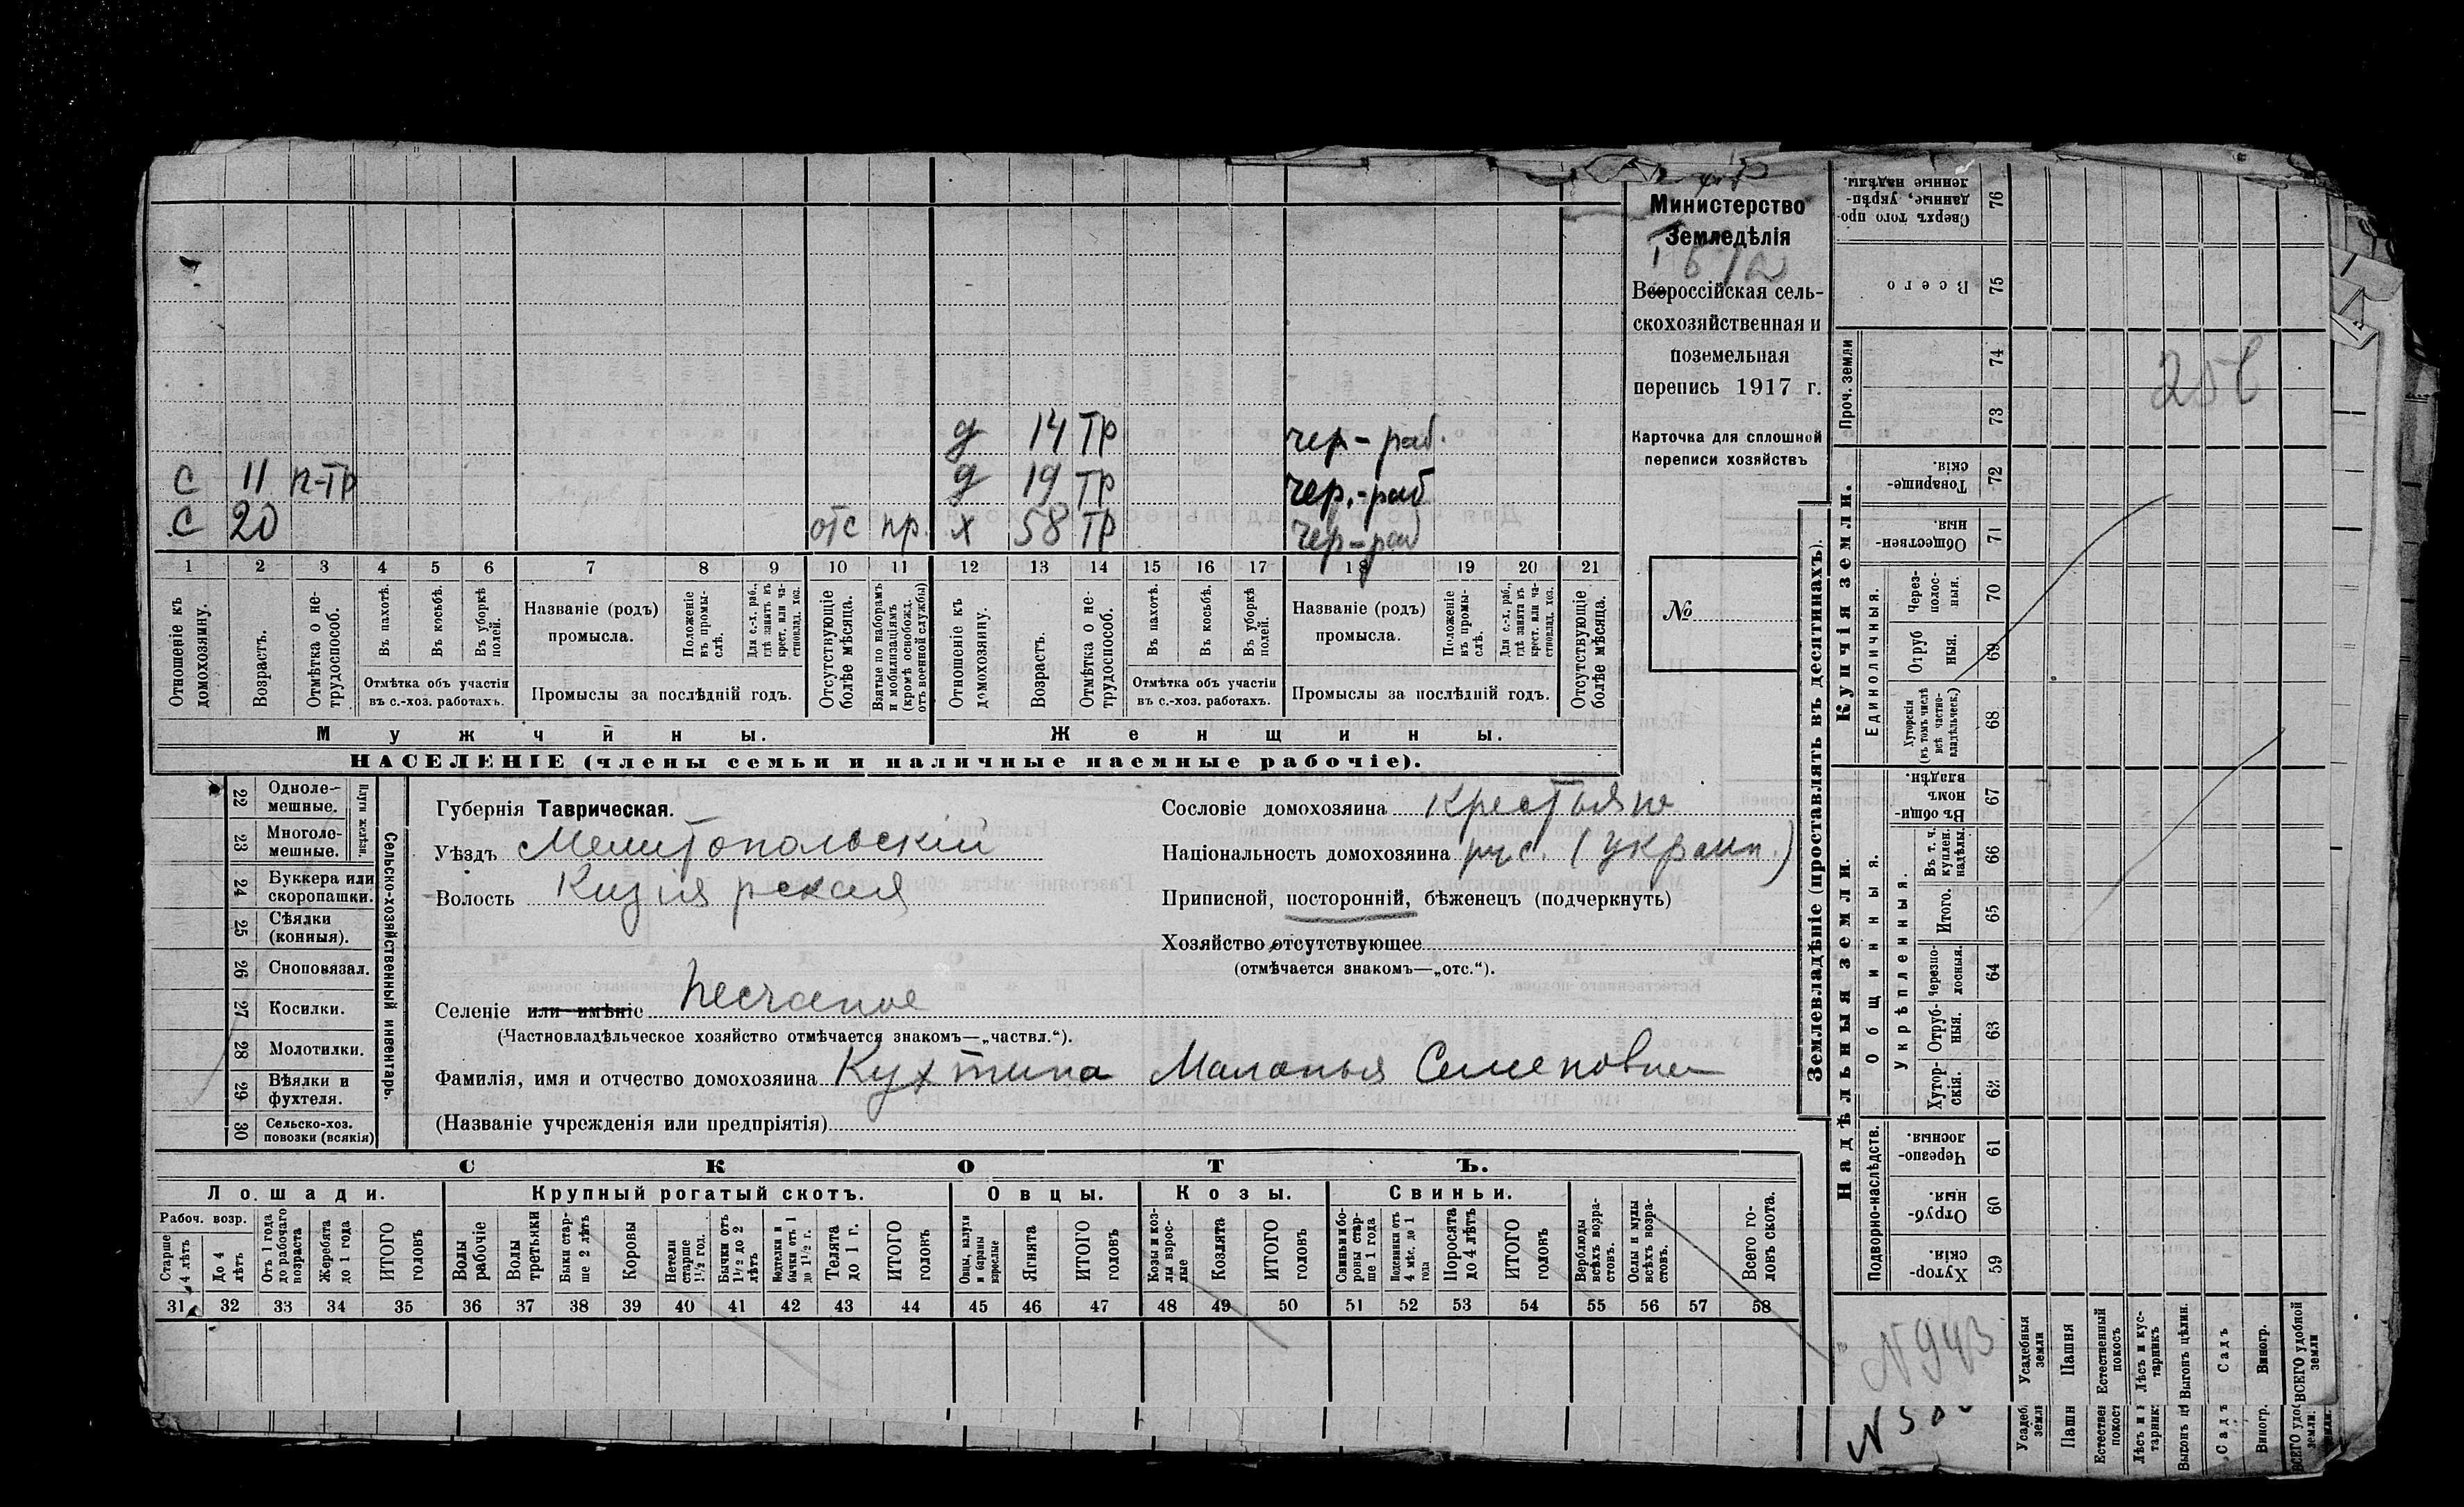 Министерство
Земледѣлія
Всероссійская сель-
скохозяйственная и
поземельная
перепись 1917 г.
Карточка для сплошной
переписи хозяйствъ
№
д 14 тр чер-раб.
с 11 п-тр д 19 тр чер.-раб
с 20 отс пр. х 58 тр чер-раб
1 2 3 4 5 6 7 8 9 10 11 12 13 14 15 16 17 18 19 20 21
Отношеніе къ домохозяину.
Возрастъ.
Отмѣтка о не-трудоспособ.
Въ пахотѣ.
Въ косьбѣ.
Въ уборкѣ полей.
Отмѣтка объ участіи
въ с.-хоз. работахъ.
Названіе (родъ)
промысла.
Положеніе въ промы-слѣ.
Для с.-х. раб., гдѣ занятъ въ крест. или ча-стновлад. хоз.
Промыслы за послѣдній годъ.
Отсутствующіе болѣе мѣсяца.
Взятые по наборамъ и мобилизаціямъ (кромѣ освобожд. отъ военной службы)
Отношеніе къ домохозяину.
Возрастъ.
Отмѣтка о не-трудоспособ.
Въ пахотѣ.
Въ косьбѣ.
Въ уборкѣ полей.
Отмѣтка объ участіи
въ с.-хоз. работахъ.
Названіе (родъ)
промысла.
Положеніе въ промы-слѣ.
Для с.-х. раб., гдѣ занята въ крест. или ча-стновлад. хоз.
Промыслы за послѣдній годъ.
Отсутствующіе болѣе мѣсяца.
Мужчины.
Женщины.
НАСЕЛЕНІЕ (члены семьи и наличные наемные рабочіе).
22 Одноле-мешные.
23 Многоле-мешные.
Плуги желѣзн.
24 Буккера или скоропашки.
25 Сѣялки (конныя).
26 Сноповязал.
27 Косилки.
28 Молотилки.
29 Вѣялки и фухтеля.
30 Сельско-хоз. повозки (всякія)
Сельско-хозяйственный инвентарь.
Губернія Таврическая.
Уѣздъ Мелитопольскій
Волость Кизіярская
Селеніе или имѣніе Песчаное
(Частновладѣльческое хозяйство отмѣчается знакомъ—„частвл.“).
Фамилія, имя и отчество домохозяина Кухтина Маланья Семеновна
(Названіе учрежденія или предпріятія)
Сословіе домохозяина крестьян
Національность домохозяина рус. (украин.)
Приписной, посторонній, бѣженецъ (подчеркнуть)
Хозяйство отсутствующее
(отмѣчается знакомъ—„отс.“).
СКОТЪ.
Лошади.
Крупный рогатый скотъ.
Овцы.
Козы.
Свиньи.
Рабоч. возр.
Старше 4 лѣтъ
До 4 лѣтъ
Отъ 1 года до рабочаго возраста
Жеребята до 1 года
ИТОГО головъ
Волы рабочіе
Волы третьяки
Быки стар-ше 2 лѣтъ
Коровы
Нетели старше 1½ год.
Бычки отъ 1½ до 2 лѣтъ
Подтелки и бычки отъ 1 до 1½ г.
Телята до 1 г.
ИТОГО головъ
Овцы, валухи и бараны взрослые
Ягнята
ИТОГО головъ
Козы и коз-лы взрос-лые
Козлята
ИТОГО головъ
Свиньи и бо-ровы стар-ше 1 года
Подсвинки отъ 4 мѣс. до 1 года
Поросята до 4 лѣтъ
ИТОГО головъ
Верблюды всѣхъ возра-стовъ.
Ослы и мулы всѣхъ возра-стовъ.
Всего го-ловъ скота.
31 32 33 34 35 36 37 38 39 40 41 42 43 44 45 46 47 48 49 50 51 52 53 54 55 56 57 58
Землевладѣніе (проставлять въ десятинахъ).
Сверхъ того про-данные, укрѣп-ленные надѣлы. 76
Всего 75
Проч. земли
74
73
Купчія земли.
Товарище-скія. 72
Обществен-ныя. 71
Единоличныя.
Через-полос-ныя. 70
Отруб ныя. 69
Хуторскія (въ томъ числѣ всѣ частно-владѣльческ.) 68
Надѣльныя земли.
Въ общи номъ владѣн. 67
Общинныя.
Укрѣпленныя.
Въ т. ч. куплен. надѣлы. 66
Итого. 65
Черезпо-лосныя. 64
Отруб-ныя. 63
Хутор-скія. 62
Подворно-наслѣдств.
Черезпо-лосныя. 61
Отруб-ныя. 60
Хутор-скія. 59
N 943
Усадебныя земли
Пашня
Естественный покосъ
Лѣсъ и кус-тарникъ
Выгонъ цѣлин.
Садъ
Виногр.
ВСЕГО удобной земли